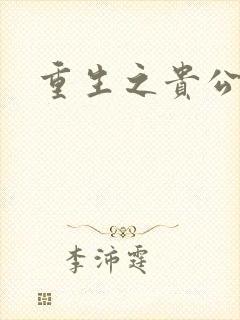 重生之貴公
李沛霆